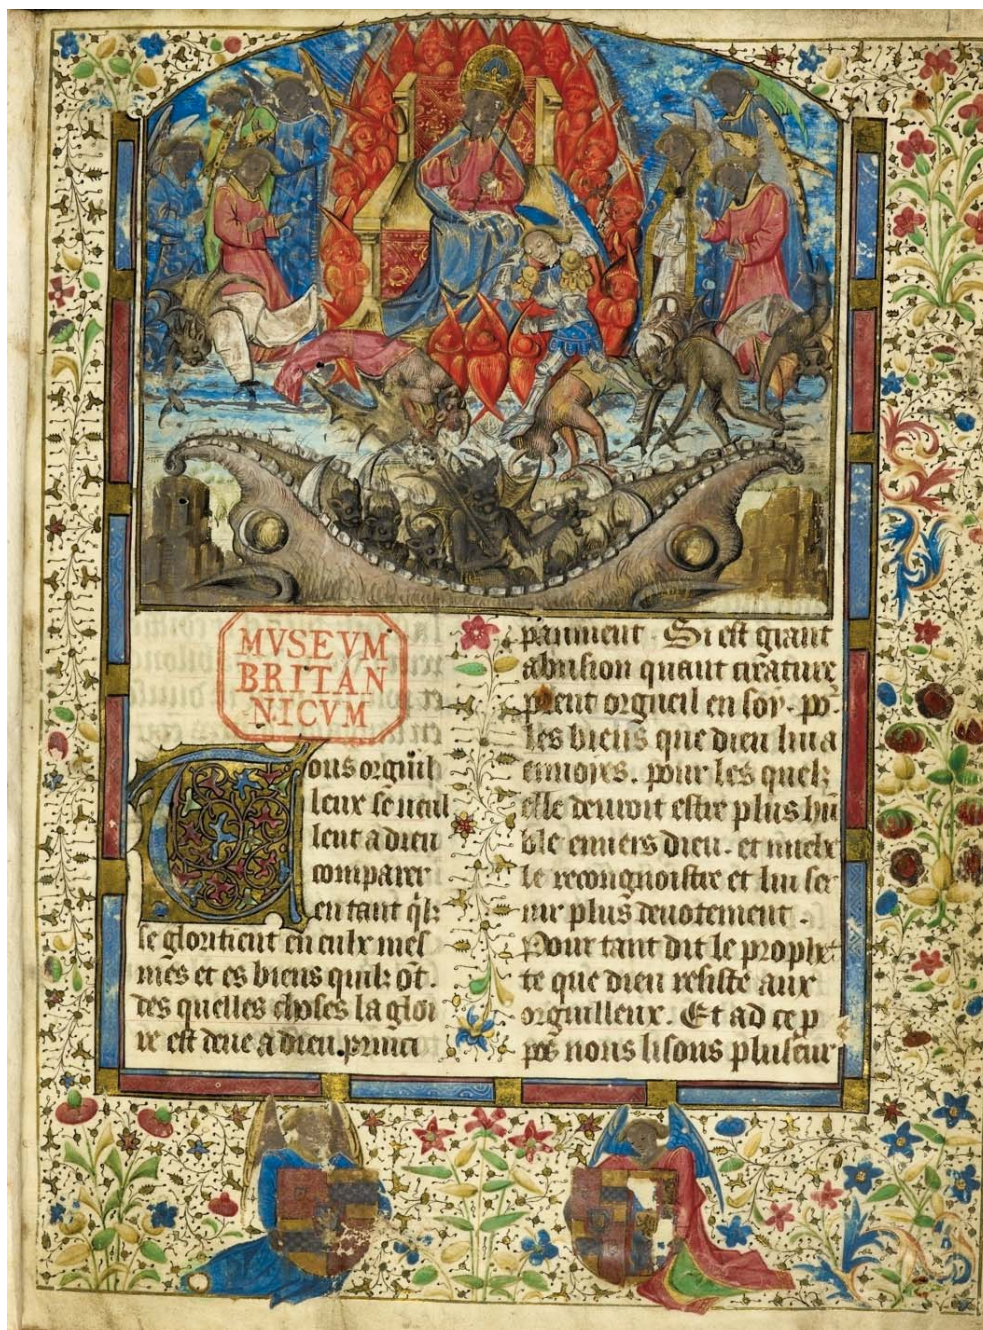 MVSEVM
BRITAN
NICVM
Tous orguil
leux se ueul
lent a dieu
comparer
en tant qlz
se glorifient en eulx mes
mes et es biens quilz ot.
des quelles choses la gloi
re est deue a dieu. princi
paument. Si est grant
abusion quant creature
prent orgueil en soy. po
les biens que dieu lui a
enuoyes. pour les quelz
elle deuroit estre plus hu
ble enuers dieu. et mieulx
le recongnoistre et lui ser
uir plus deuotement.
Pour tant dit le prophe
te que dieu resiste aux
orguilleux. Et ad ce p
pos nous lisons pluseurs